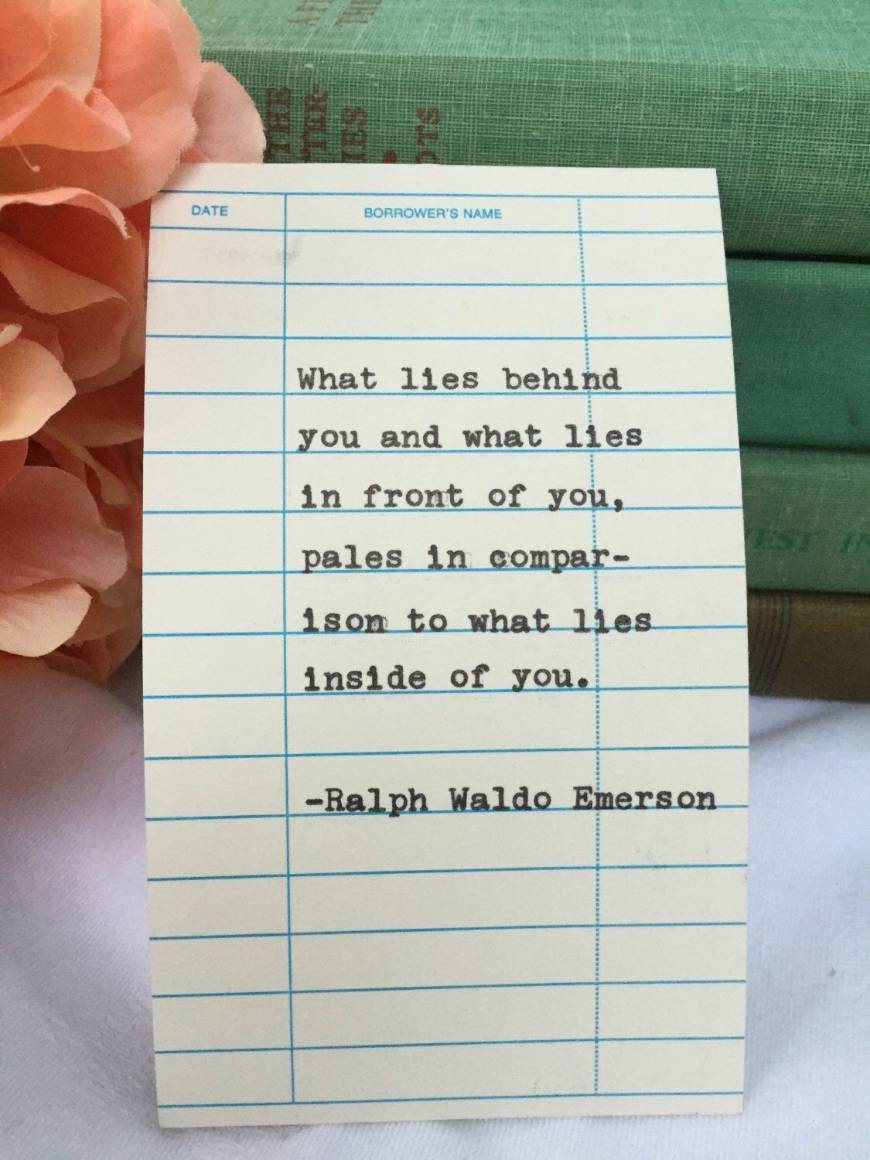 THE
TER-
IES
OTS
DATE BORROWER'S NAME
What lies behind
you and what lies
in front of you,
pales in compar-
ison to what lies
inside of you.
-Ralph Waldo Emerson